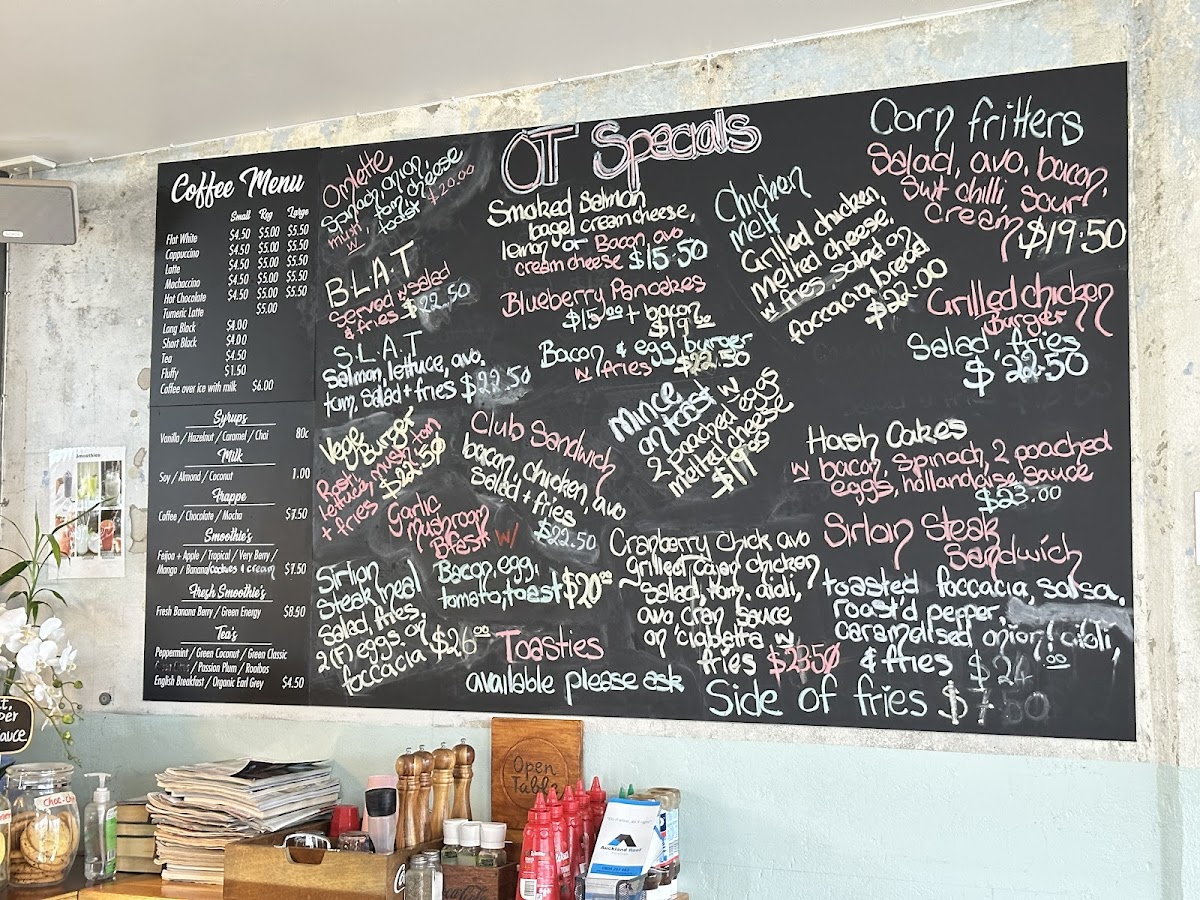 Coffee Menu
Small Reg Large
Flat White $4.50 $5.00 $5.50
Cappuccino $4.50 $5.00 $5.50
Latte $4.50 $5.00 $5.50
Mochaccino $4.50 $5.00 $5.50
Hot Chocolate $4.50 $5.00 $5.50
Tumeric Latte $5.00
Long Black $4.00
Short Black $4.00
Tea $4.50
Fluffy $1.50
Coffee over ice with milk $6.00
Syrups
Vanilla / Hazelnut / Caramel / Chai 80c
Milk
Soy / Almond / Coconut 1.00
Frappe
Coffee / Chocolate / Mocha $7.50
Smoothie's
Feijoa + Apple / Tropical / Very Berry /
Mango / Banana/Cookies & cream $7.50
Fresh Smoothie's
Fresh Banana Berry / Green Energy $8.50
Tea's
Peppermint / Green Coconut / Green Classic
/ Passion Plum / Rooibas
English Breakfast / Organic Earl Grey $4.50
OT Specials
Omlette
Spinach, onion,
mush, tom, cheese
w/ toast $20.00
B.L.A.T
Served w salad
& fries $22.50
S.L.A.T
Salmon, lettuce, avo,
tom, salad + fries $22.50
Vege Burger
Rosti,
lettuce, mush, tom
+ fries $22.50
Garlic
Mushroom
Bfast w/
Bacon, egg,
tomato, toast $20.00
Sirlion
Steak meal
Salad, fries,
2(F) eggs. on
foccacia $26.00
Smoked Salmon
bagel cream cheese,
lemon or Bacon avo
cream cheese $15.50
Blueberry Pancakes
$15.00 + bacon
$19.00
Bacon & egg burger
w fries $22.50
Club Sandwich
bacon, chicken, avo
Salad + fries
$22.50
Mince
on toast w
2 poached eggs
melted cheese
$17
Toasties
available please ask
Chicken
melt
Grilled chicken,
melted cheese,
w fries, salad on
foccacia bread
$22.00
Cranberry chick avo
Grilled Cajan chicken
~ Salad, tom, aioli,
avo cran sauce
on ciabatta w
fries $23.50
Corn fritters
Salad, avo, bacon,
Swt chilli, sour
cream $19.50
Grilled chicken
Burger
Salad, fries
$22.50
Hash Cakes
w bacon, spinach, 2 poached
eggs, hollandaise sauce
$23.00
Sirlion Steak
Sandwich
toasted foccacia, salsa,
roast'd pepper,
caramelised onion, aioli,
& fries $24.00
Side of fries $7.50
Smoothies
Choc-Ch
Open
Table
Auckland Reef
Coca-Cola